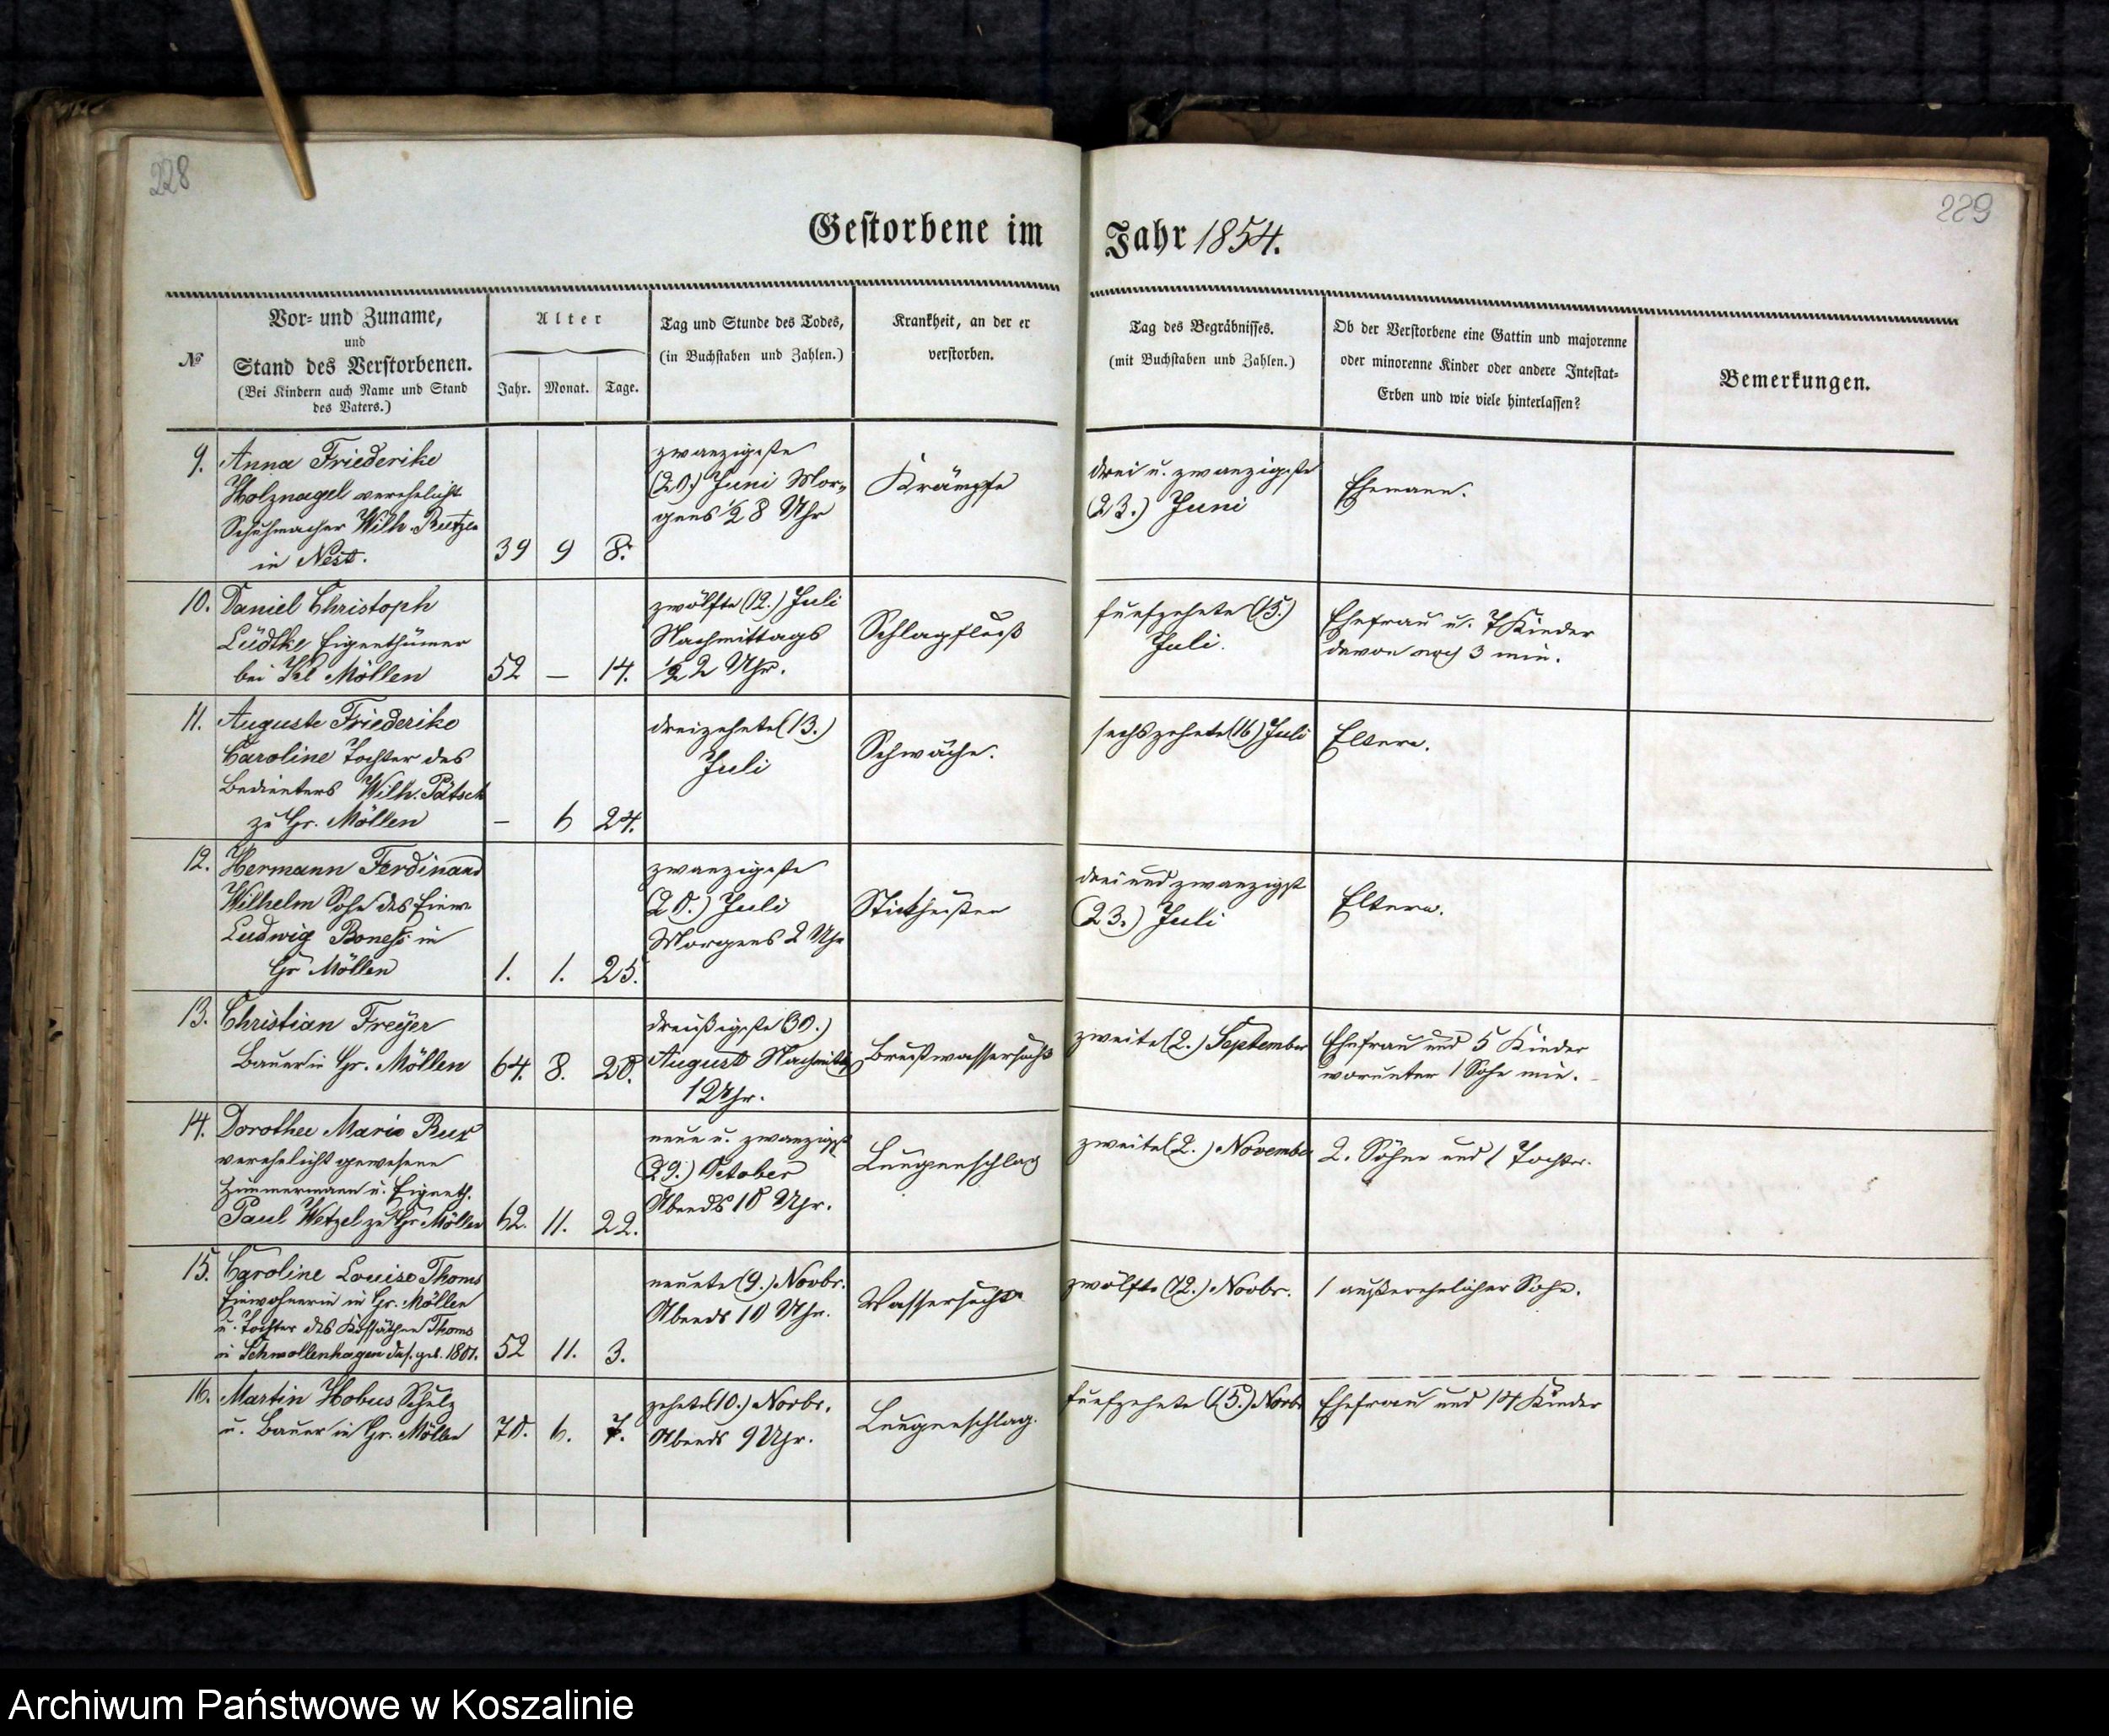 228
229
Gestorbene im Jahr 1854.
№
Vor- und Zuname,
und
Stand des Verstorbenen.
(Bei Kindern auch Name und Stand
des Vaters.)
Alter
Jahr. Monat. Tage.
Tag und Stunde des Todes,
(in Buchstaben und Zahlen.)
Krankheit, an der er
verstorben.
Tag des Begräbnisses.
(mit Buchstaben und Zahlen.)
Ob der Verstorbene eine Gattin und majorenne
oder minorenne Kinder oder andere Intestat-
Erben und wie viele hinterlassen?
Bemerkungen.
9. Anna Friederike
Holznagel verehelicht
Schuhmacher Wilh.
in Nest.
39 9 8.
zwanzigste
(20.) Juni Mor-
gens ½ 8 Uhr
Krämpfe
drei u. zwanzigste
(23.) Juni
Ehemann.
10. Daniel Christoph
Lüdtke Eigenthümer
bei Kl Möllen
52 — 14.
zwölfte (12.) Juli
Nachmittags
½ 2 Uhr.
Schlagfluß
funfzehnte (15.)
Juli.
Ehefrau u. 7 Kinder
davon noch 3 min.
11. Auguste Friederike
Caroline Tochter des
Bedienters Wilh. Pätsch
zu Gr. Möllen
— 6 24.
dreizehnte (13.)
Juli
Schwäche.
sechszehnte (16) Juli
Eltern.
12. Hermann Ferdinand
Wilhelm Sohn des Einw.
Ludwig Boness in
Gr Möllen
1. 1. 25.
zwanzigste
(20.) Juli
Morgens 2 Uhr
Stickhusten
drei und zwanzigst
(23.) Juli
Eltern.
13. Christian Freyer
Bauer in Gr. Möllen
64. 8. 20.
dreißigste (30.)
August Nachmitt
1 Uhr.
Brustwassersucht
zweite (2.) September
Ehefrau und 5 Kinder
worunter 1 Sohn min.
14. Dorothee Marie
verehelicht gewesene
Zimmermann u. Eigenth.
Paul Wetzel zu Gr Möllen
62. 11. 22.
neun u. zwanzigst
(29.) October
Abends 10 Uhr.
Lungenschlag
zweite (2.) November
2. Söhne und 1 Tochter.
15. Caroline Louise Thoms
Einwohnerin in Gr. Möllen
u. Tochter des Kossäthen Thoms
in Schwollenhagen das. geb. 1801.
52 11. 3.
neunte (9.) Novbr.
Abends 10 Uhr.
Wassersucht
zwölfte (12.) Novbr.
1 außerehelicher Sohn.
16. Martin Hobus Schulz
u. Bauer in Gr. Möllen
70. 6. 7.
zehnte (10.) Novbr.
Abends 9 Uhr.
Lungenschlag.
funfzehnte (15.) Novbr
Ehefrau und 14 Kinder
Archiwum Państwowe w Koszalinie